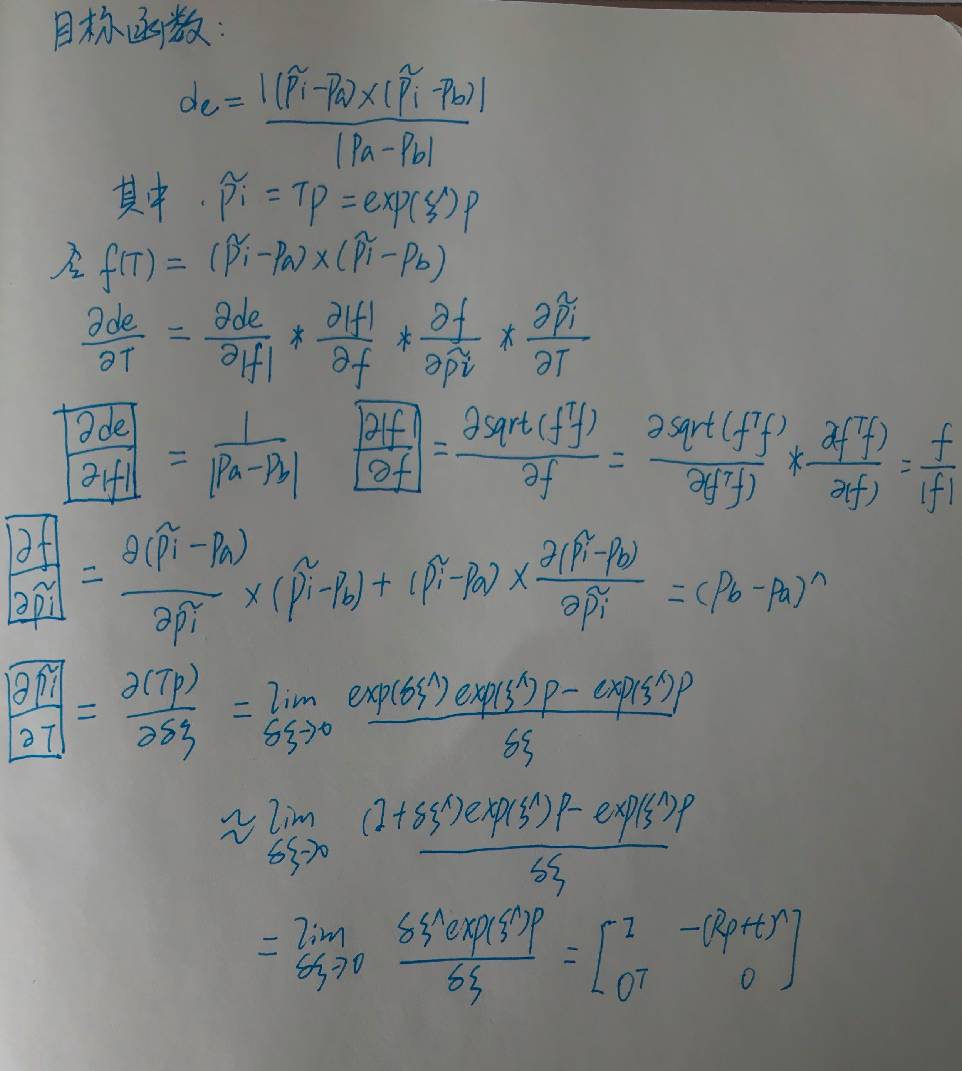 目标函数:
de = |(p̃i-Pa)×(p̃i-Pb)| / |Pa-Pb|
其中. p̃i = Tp = exp(ξ^)p
令 f(T) = (p̃i-Pa)×(p̃i-Pb)
∂de/∂T = ∂de/∂|f| * ∂|f|/∂f * ∂f/∂p̃i * ∂p̃i/∂T
∂de/∂|f| = 1/|Pa-Pb| ∂|f|/∂f = ∂sqrt(fᵀf)/∂f = ∂sqrt(fᵀf)/∂(fᵀf) * ∂(fᵀf)/∂(f) = f/|f|
∂f/∂p̃i = ∂(p̃i-Pa)/∂p̃i × (p̃i-Pb) + (p̃i-Pa) × ∂(p̃i-Pb)/∂p̃i = (Pb-Pa)^
∂p̃i/∂T = ∂(Tp)/∂δξ = lim δξ→0 (exp(δξ^)exp(ξ^)p - exp(ξ^)p)/δξ
≈ lim δξ→0 ((I+δξ^)exp(ξ^)p - exp(ξ^)p)/δξ
= lim δξ→0 δξ^exp(ξ^)p/δξ = [I -(Rp+t)^; 0ᵀ 0]